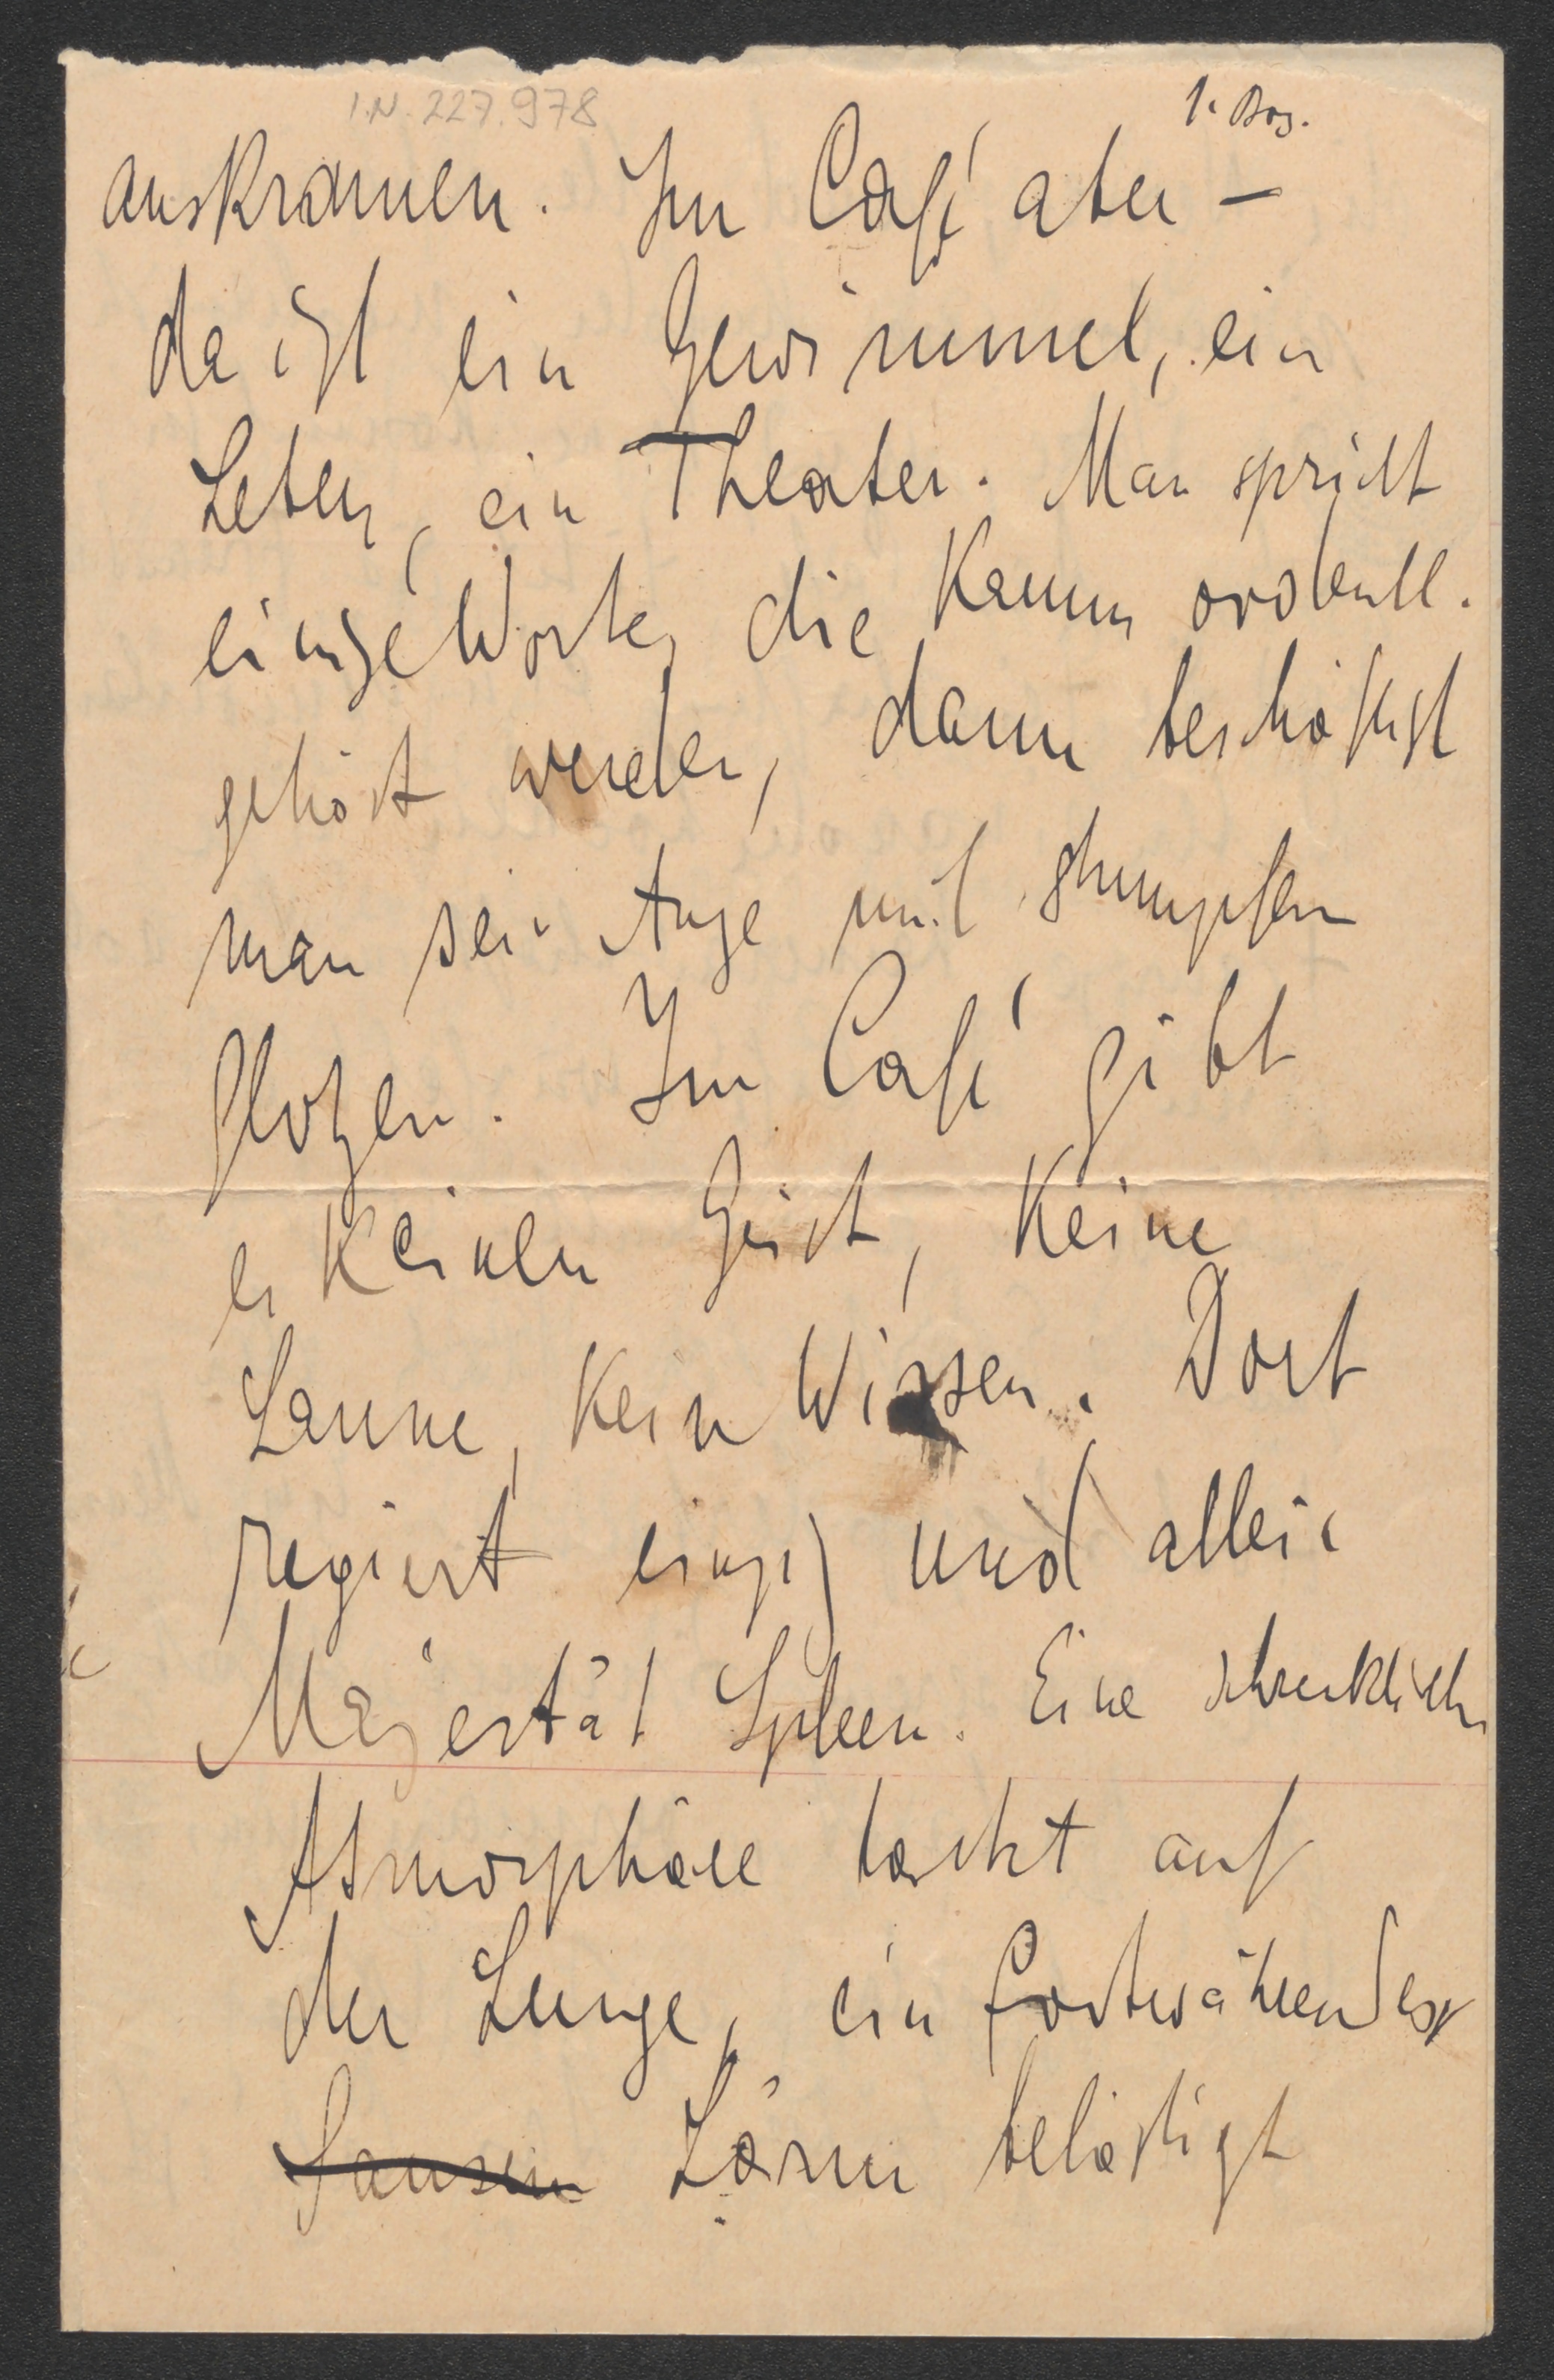 I.N. 227.978
1. Bog.
auskramen. Im Café aber –
da ist ein Gewimmel, ein
Leben, ein Theater. Man spricht
einige Worte, die kaum ordentl.
gehört werden, dann beschäftigt
man sein Auge mit stumpfem
Glotzen. Im Café gibt
es keinen Geist, keine
Laune, kein Wissen. Dort
regiert einzig und allein
Majestät Spleen. Eine schreckliche
Atmosphäre lastet auf
der Lunge, ein fortwährender
Sausen Lärm belästigt